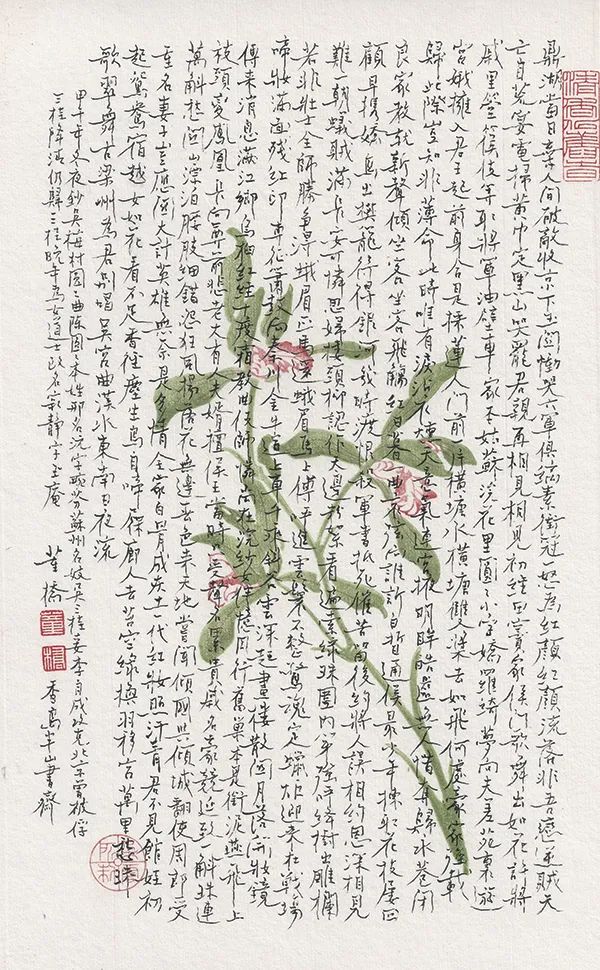 鼎湖當日棄人間破敵收京下玉關慟哭六軍俱縞素衝冠一怒為紅顏紅顏流落非吾戀逆賊天
亡自荒宴電掃黃巾定黑山哭罷君親再相見相見初經田竇家侯門歌舞出如花許將
戚里箜篌伎等取將軍油壁車家本姑蘇浣花里圓圓小字嬌羅綺夢向夫差苑裏遊
宮娥擁入君王起前身合是採蓮人門前一片橫塘水橫塘雙槳去如飛何處豪家強載
歸此際豈知非薄命此時唯有淚沾衣熏天意氣連宮掖明眸皓齒無人惜奪歸永巷閉
良家教就新聲傾坐客坐客飛觴紅日暮一曲哀弦向誰訴白皙通侯最少年揀取花枝屢回
顧早攜嬌鳥出樊籠待得銀河幾時渡恨殺軍書抵死催苦留後約將人誤相約恩深相見
難一朝蟻賊滿長安可憐思婦樓頭柳認作天邊粉絮看遍索綠珠圍內第強呼絳樹出雕欄
若非壯士全師勝爭得蛾眉匹馬還蛾眉馬上傳呼進雲鬟不整驚魂定蠟炬迎來在戰場
啼妝滿面殘紅印專征簫鼓向秦川金牛道上車千乘斜谷雲深起畫樓散關月落開妝鏡
傳來消息滿江鄉烏桕紅經十度霜教曲伎師憐尚在浣紗女伴憶同行舊巢本是銜泥燕飛上
枝頭變鳳凰長向尊前悲老大有人夫婿擅侯王當時只受聲名累貴戚名豪競延致一斛珠連
萬斛愁關山漂泊腰肢細錯怨狂風颺落花無邊春色來天地嘗聞傾國與傾城翻使周郎受
重名妻子豈應關大計英雄無奈是多情全家白骨成灰土一代紅妝照汗青君不見館娃初
起鴛鴦宿越女如花看不足香徑塵生鳥自啼屧廊人去苔空綠換羽移宮萬里愁珠
歌翠舞古梁州為君別唱吳宮曲漢水東南日夜流
甲午年冬夜鈔吳梅村圓圓曲陳圓圓本姓邢名沅字畹芬蘇州名妓吳三桂妾李自成攻克北京曾被俘
三桂降清仍歸三桂晚年為女道士改名寂靜字玉庵
董橋
董
橋
香島半山書齋